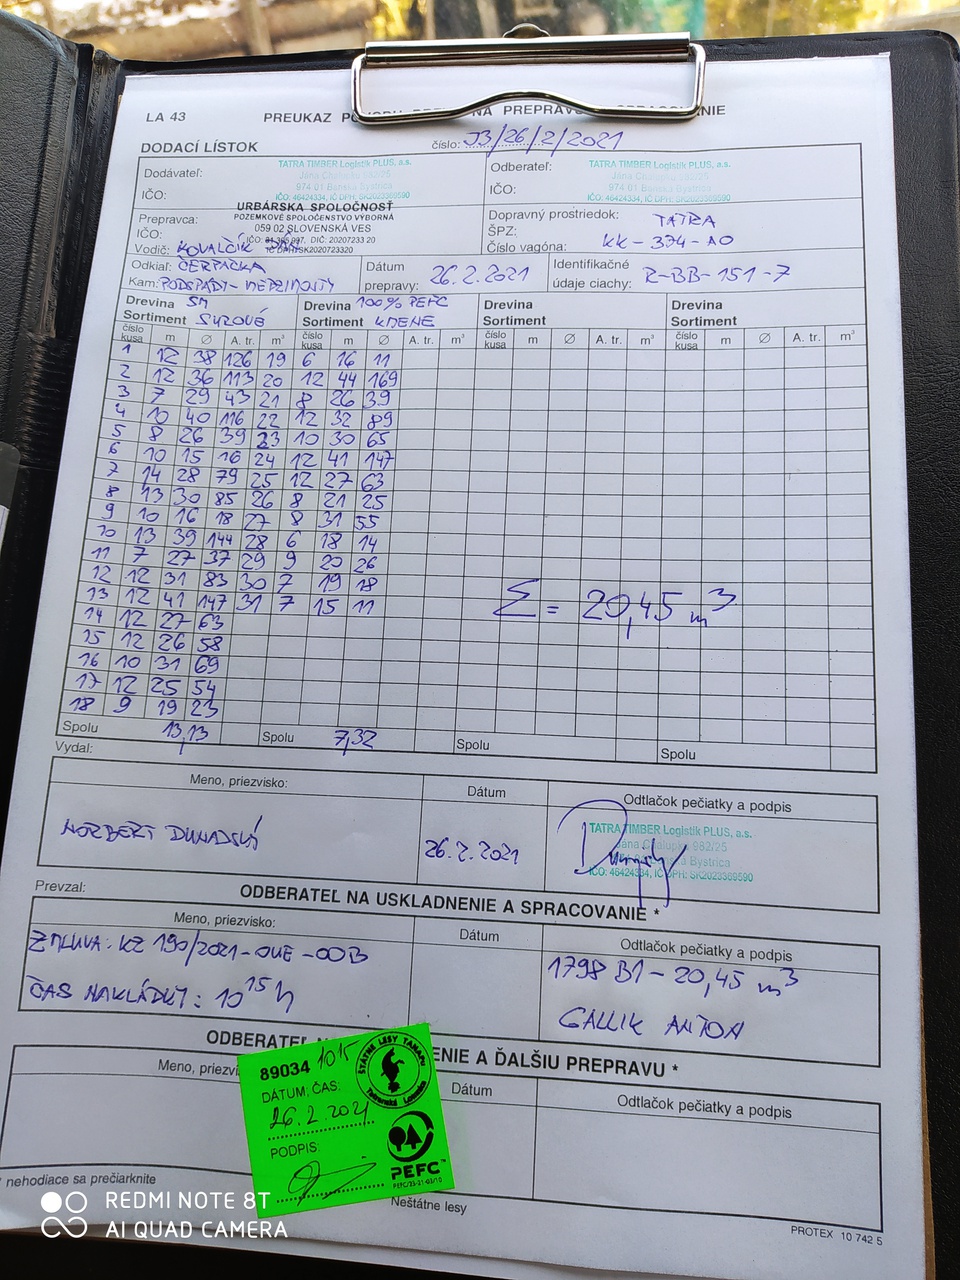 LA 43 PREUKAZ NA PREPRAVU SPRACOVANIE
DODACÍ LÍSTOK číslo: J3/26/2/2021
Dodávateľ: TATRA TIMBER Logistik PLUS, a.s.
Jána Chalupku 982/25
974 01 Banská Bystrica
IČO: IČO: 46424334, IČ DPH: SK2023369590
Odberateľ: TATRA TIMBER Logistik PLUS, a.s.
Jána Chalupku 982/25
974 01 Banská Bystrica
IČO: IČO: 46424334, IČ DPH: SK2023369590
URBÁRSKA SPOLOČNOSŤ
Prepravca: POZEMKOVÉ SPOLOČENSTVO VÝBORNÁ
IČO: 059 02 SLOVENSKÁ VES
DIČ: 20207233 20
Vodič: KOVALČÍK
Dopravný prostriedok: TATRA
ŠPZ:
Číslo vagóna: KK-374-AO
Odkiaľ: ČERPAČKA
Kam: PODSPÁDY-MEDZIMOSTY
Dátum
prepravy: 26.2.2021
Identifikačné
údaje ciachy: R-BB-151-7
Drevina SM Drevina 100% PEFC Drevina Drevina
Sortiment SUROVÉ Sortiment KMENE Sortiment Sortiment
číslo kusa m Ø A. tr. m³ číslo kusa m Ø A. tr. m³ číslo kusa m Ø A. tr. m³ číslo kusa m Ø A. tr. m³
1 12 38 126 19 6 16 11
2 12 36 113 20 12 44 169
3 7 29 43 21 8 26 39
4 10 40 116 22 12 32 89
5 8 26 39 23 10 30 65
6 10 15 16 24 12 41 147
7 14 28 79 25 12 27 63
8 13 30 85 26 8 21 25
9 10 16 18 27 8 31 55
10 13 39 144 28 6 18 14
11 7 27 37 29 9 20 26
12 12 31 83 30 7 19 18
13 12 41 147 31 7 15 11
14 12 27 63
15 12 26 58
16 10 31 69
17 12 25 54
18 9 19 23
Σ = 20,45 m³
Spolu 13,13 Spolu 7,32 Spolu Spolu
Vydal:
Meno, priezvisko: Dátum Odtlačok pečiatky a podpis
NORBERT 26.2.2021
TATRA TIMBER Logistik PLUS, a.s.
Jána Chalupku 982/25
974 01 Banská Bystrica
IČO: 46424334, IČ DPH: SK2023369590
Prevzal: ODBERATEĽ NA USKLADNENIE A SPRACOVANIE *
Meno, priezvisko: Dátum Odtlačok pečiatky a podpis
ZMLUVA: KZ 190/2021-OUE-OOB
ČAS NAKLÁDKY: 10¹⁵ h
1798 B1-20,45 m³
GALLIK ANTON
ODBERATEĽ A ĎALŠIU PREPRAVU *
Meno, Dátum Odtlačok pečiatky a podpis
89034 1015
DÁTUM, ČAS:
26.2.2021
PODPIS:
ŠTÁTNE LESY TANAPU
Tatranská Lomnica
PEFC™
nehodiace sa prečiarknite
Neštátne lesy
PROTEX 10 742 5
REDMI NOTE 8T
AI QUAD CAMERA